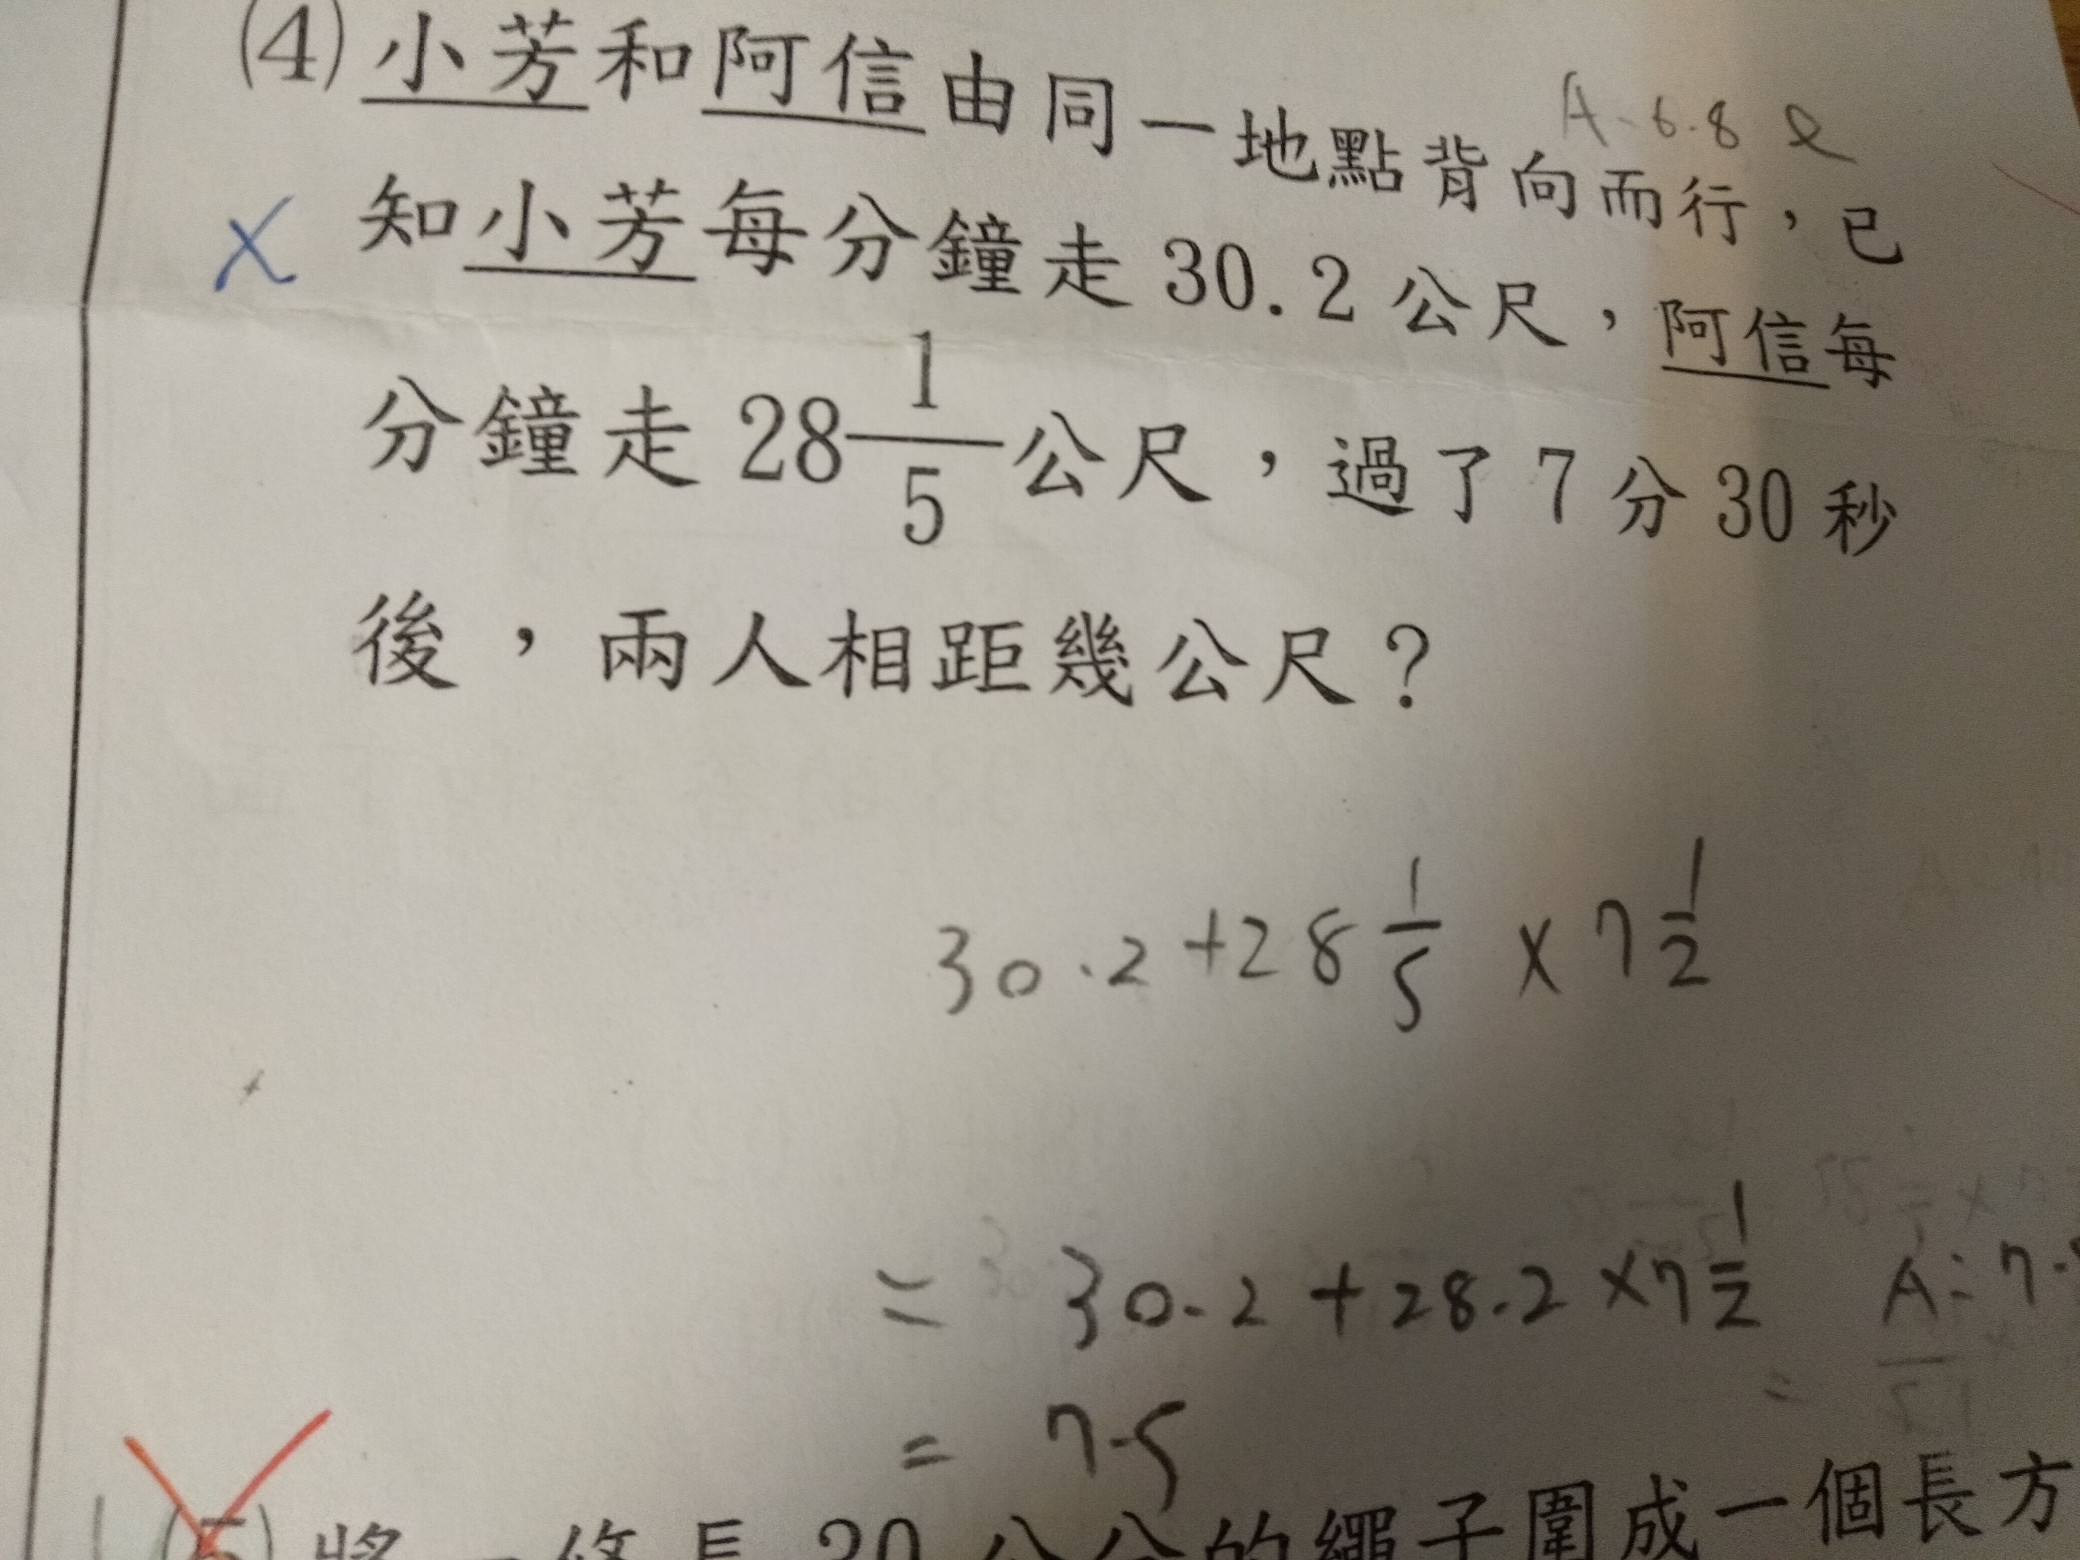 (4)小芳和阿信由同一地點背向而行，已
A-6.8
知小芳每分鐘走30.2公尺，阿信每
分鐘走28 1/5公尺，過了7分30秒
後，兩人相距幾公尺？
30.2+28 1/5 ×7 1/2
= 30.2+28.2×7 1/2 A=7.
= 7.5
(5)將一條長30公分的繩子圍成一個長方